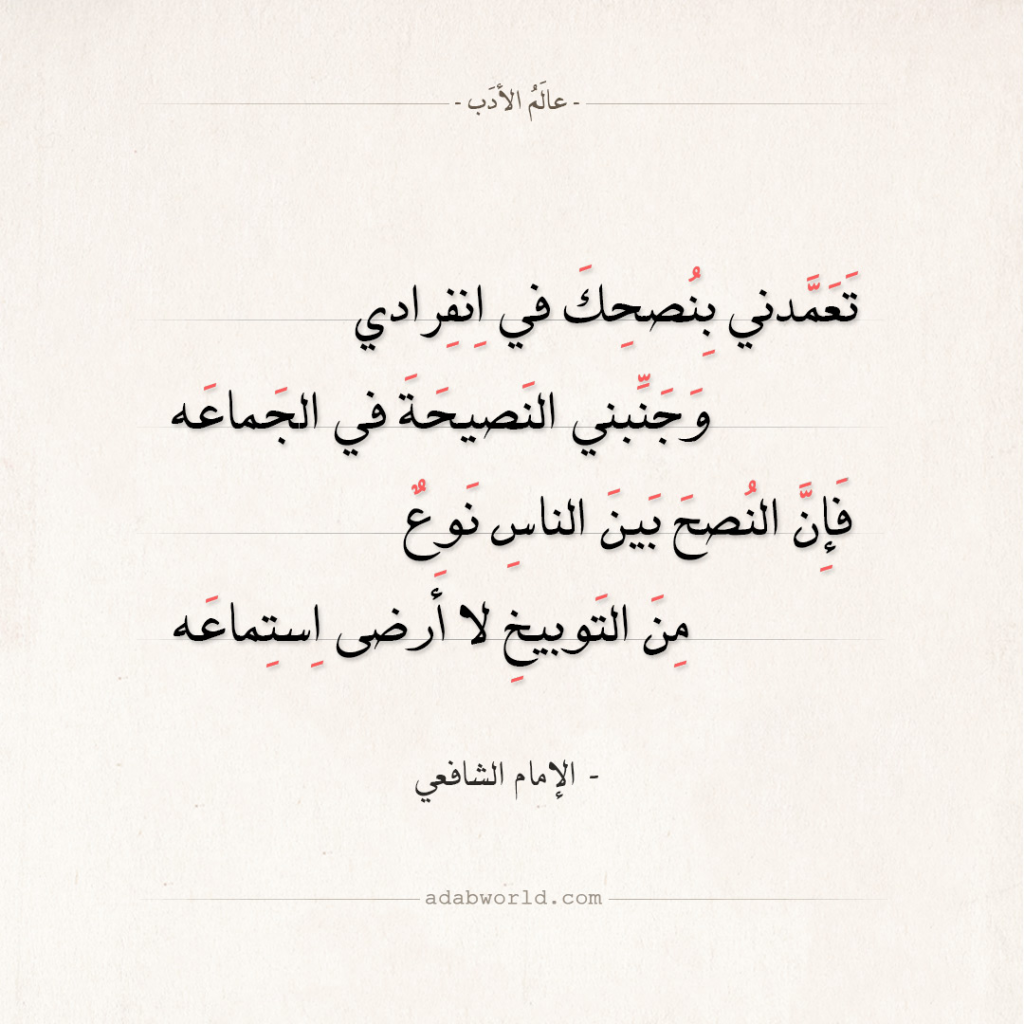 - عالَمُ الأدَب -
تَعَمَّدني بِنُصحِكَ في اِنفِرادي
وَجَنِّبني النَصيحَةَ في الجَماعَه
فَإِنَّ النُصحَ بَينَ الناسِ نَوعٌ
مِنَ التَوبيخِ لا أَرضى اِستِماعَه
- الإمام الشافعي
adabworld.com